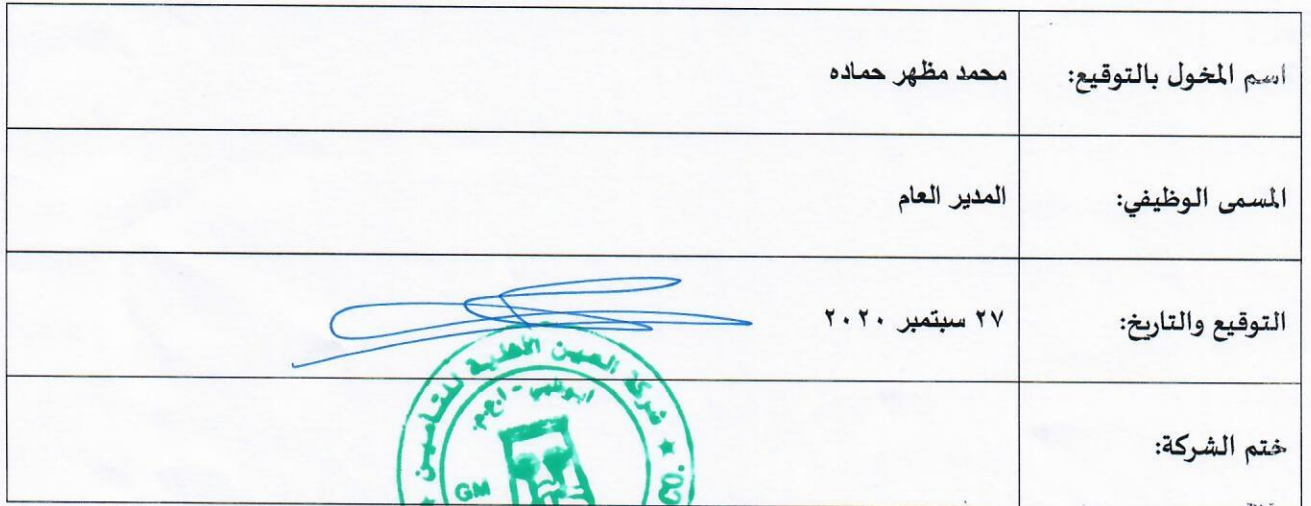 اسم المخول بالتوقيع: محمد مظهر حماده
المسمى الوظيفي: المدير العام
التوقيع والتاريخ: ٢٧ سبتمبر ٢٠٢٠
شركة العين الأهلية للتأمين
ابوظبي - ا.ع.م.
ختم الشركة:
GM
CO.